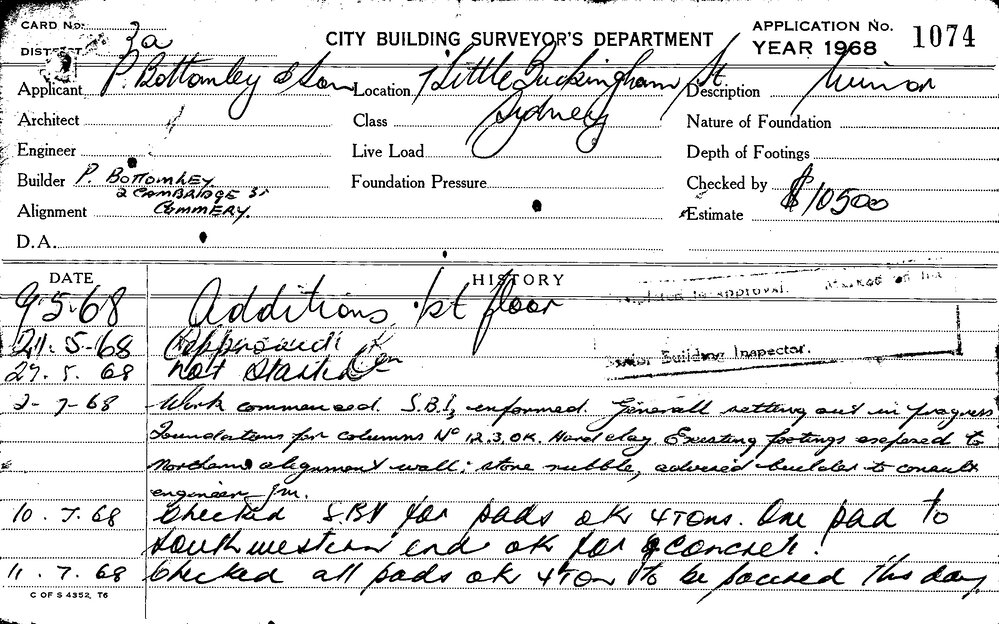 CARD No. 3a
DISTRICT
CITY BUILDING SURVEYOR'S DEPARTMENT
APPLICATION No. 1074
YEAR 1968
Applicant P. Bottomley & Son Location 1 Little Buckingham St. Description Minor
Architect Class Sydney Nature of Foundation
Engineer Live Load Depth of Footings
Builder P. BOTTOMLEY Foundation Pressure Checked by
2 CAMBRIDGE ST
Alignment CAMMERY. Estimate $10500
D.A.
DATE HISTORY
9.5.68 Additions 1st floor
to approval.
21.5.68 Approved
Senior Building Inspector.
27.5.68 Not Started
2-7-68 Work commenced. S.B.I. informed. Generall setting out in progress
Foundations for columns No 1.2.3. OK. Hard clay. Existing footings exposed to
Northern alignment wall: stone rubble, advised builder to consult
engineer Jm.
10.7.68 Checked S.B.I for pads ok 4 Tons. One pad to
South western end ok for concrete.
11.7.68 Checked all pads ok 4 Ton to be poured this day
C OF S 4352, T6